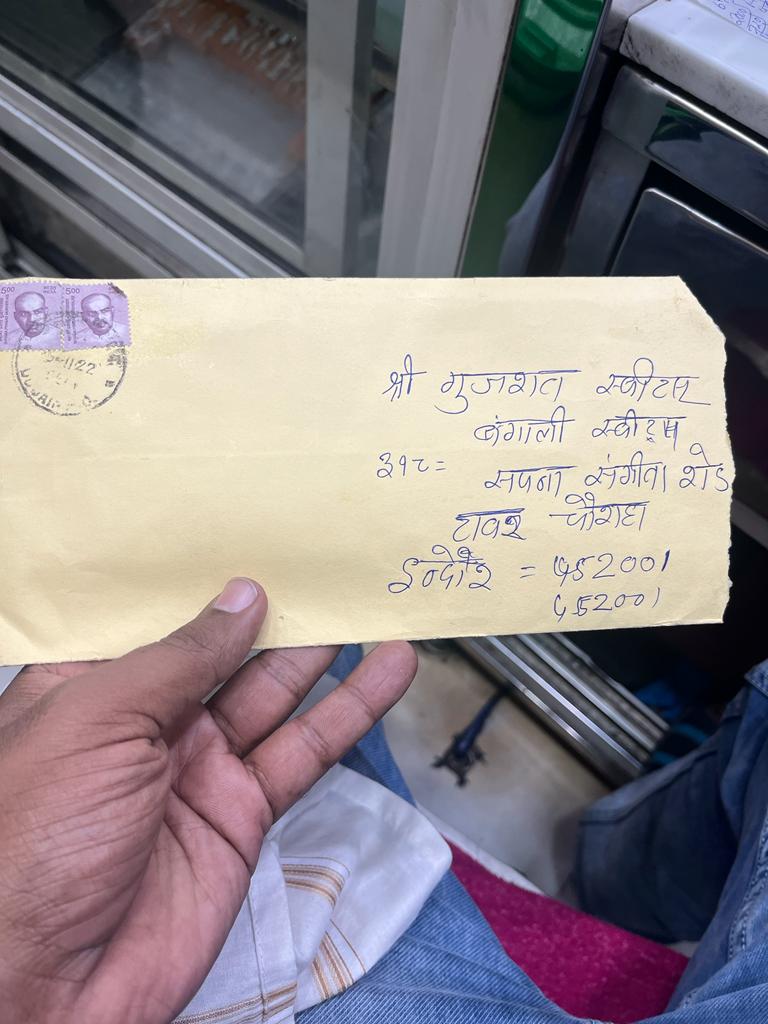 5.00
5.00
श्री गुजरात स्वीट्स
बंगाली स्वीट्स
३१८= सपना संगीता रोड
टावर चौराहा
इन्दौर = 452001
452001